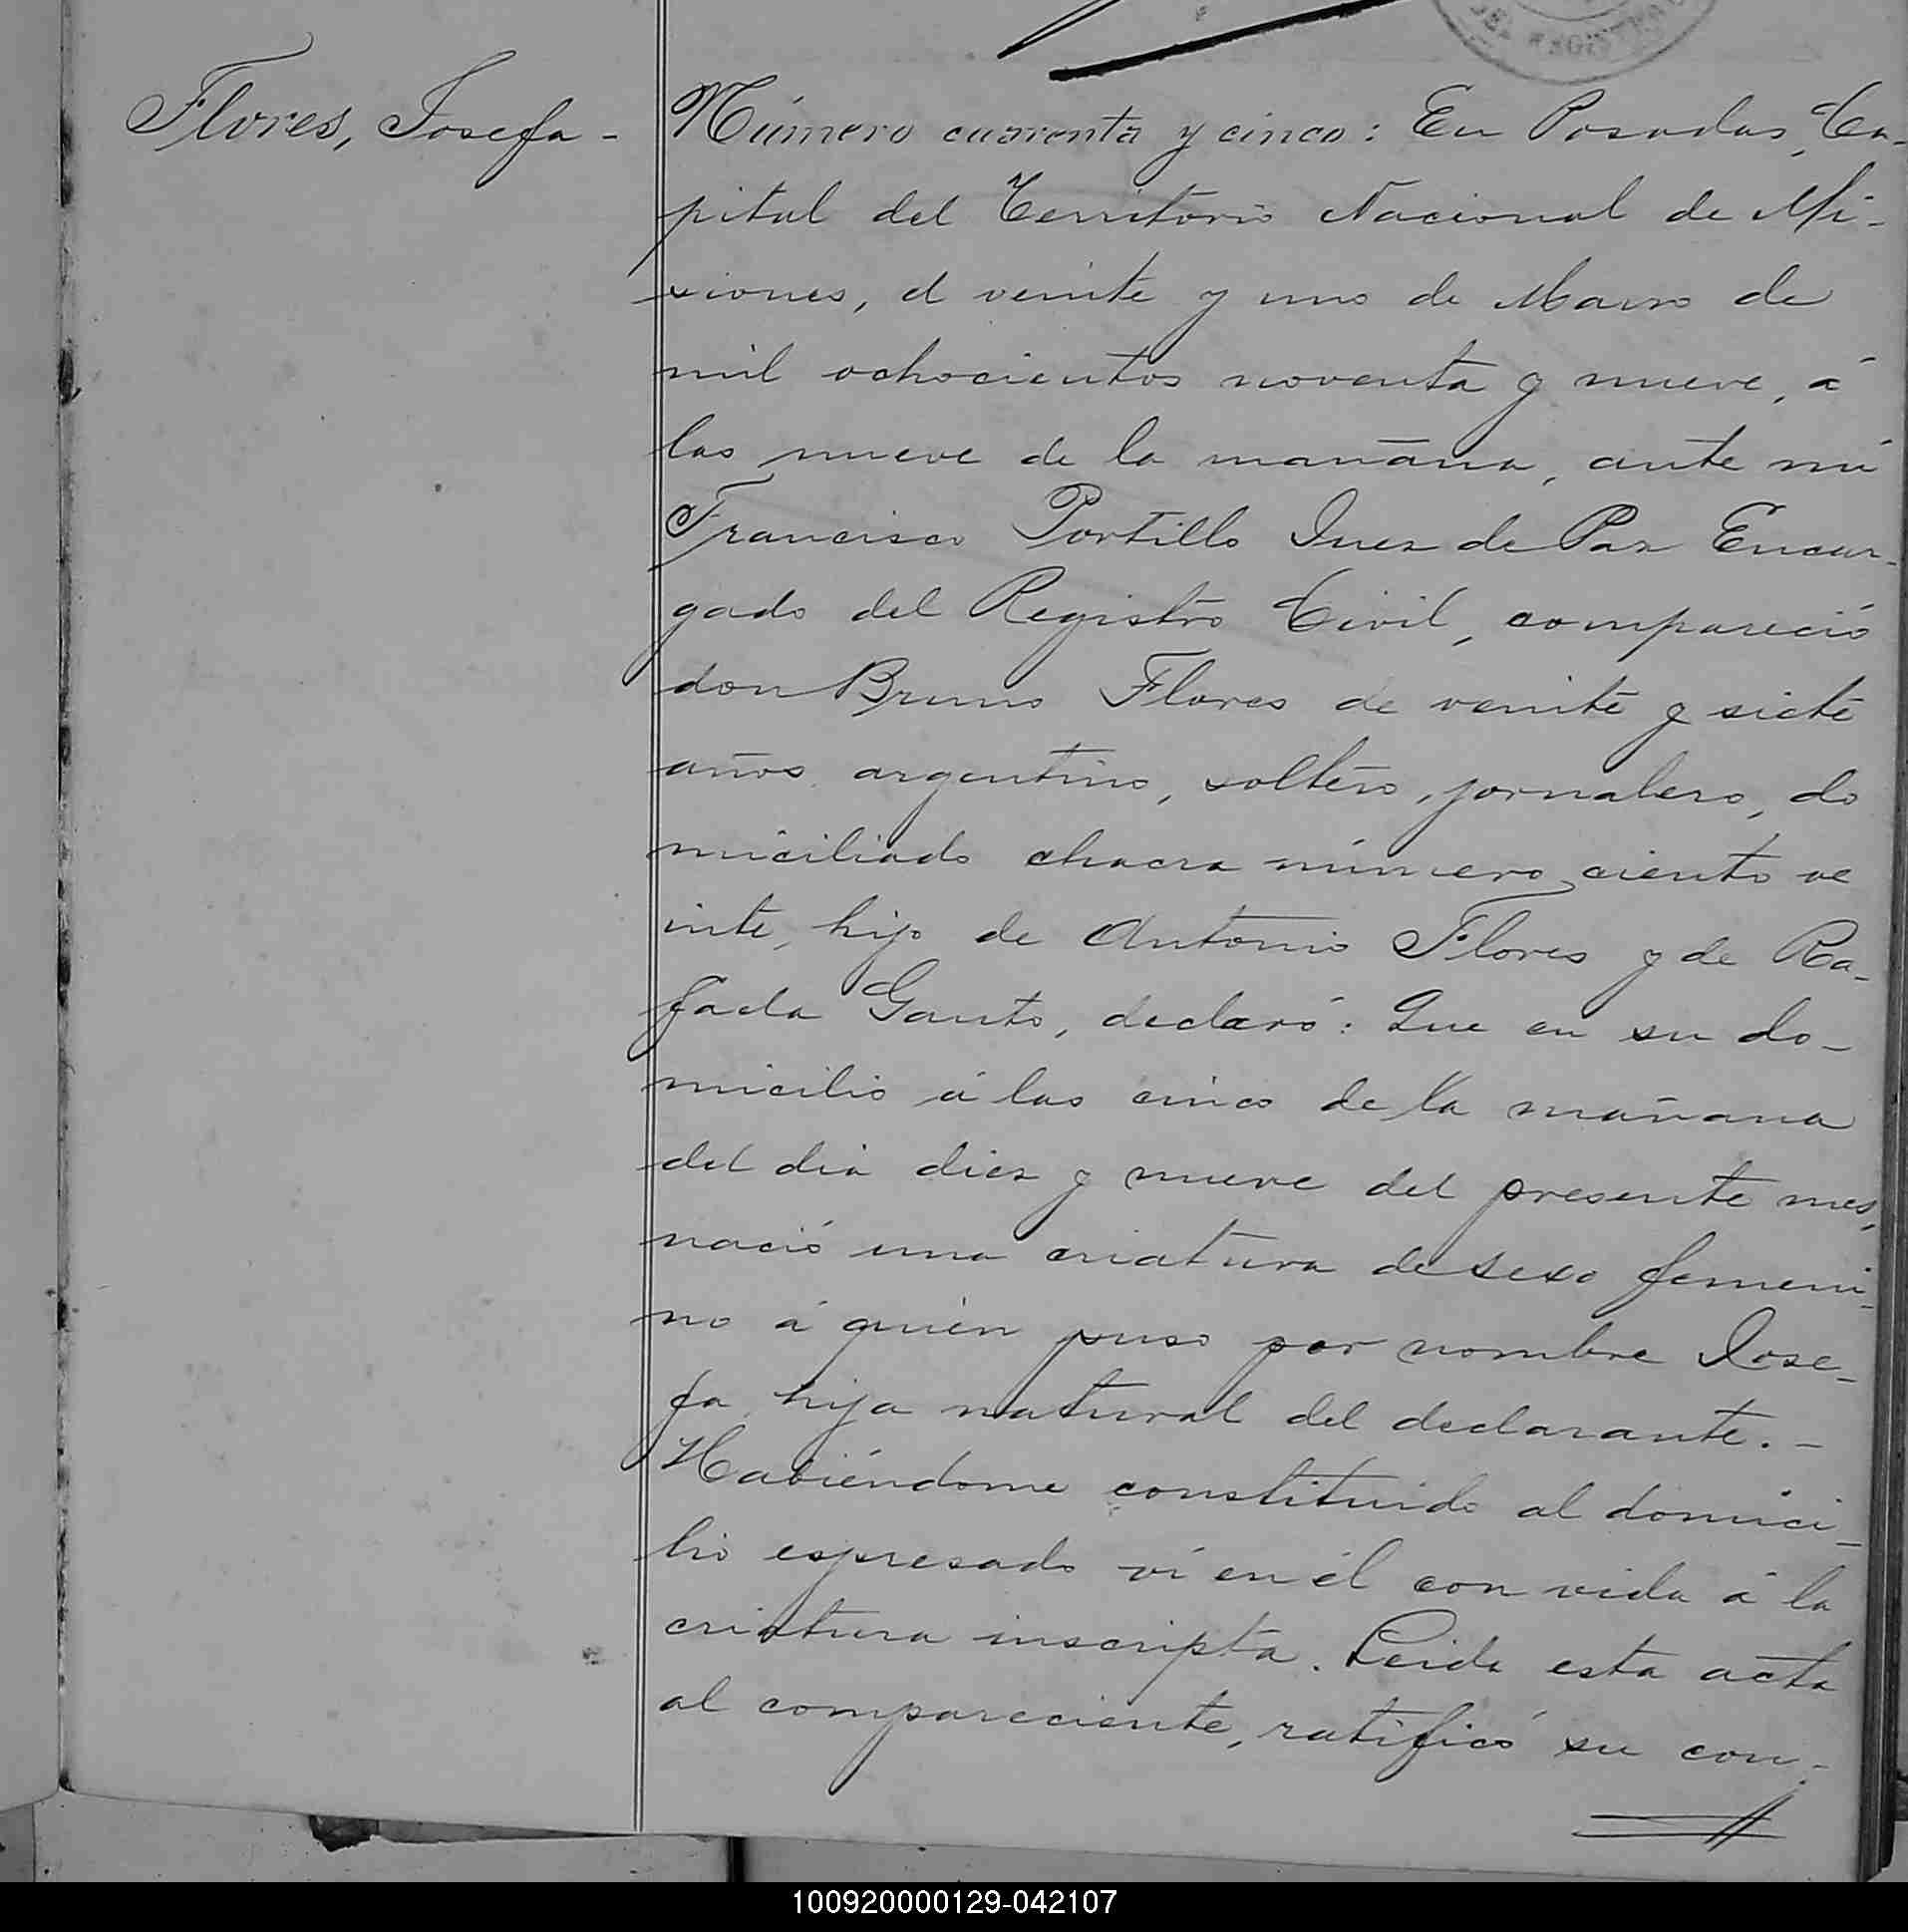 DEL REGISTRO
Flores, Josefa -
Número cuarenta y cinco: En Posadas, Ca-
pital del Territorio Nacional de Mi-
siones, el veinte y uno de Marzo de
mil ochocientos noventa y nueve, á
las nueve de la mañana, ante mí
Francisco Portillo Juez de Paz Encar-
gado del Registro Civil, compareció
don Bruno Flores de veinte y siete
años argentino, soltero, jornalero, do
miciliado chacra número ciento ve
inte, hijo de Antonio Flores y de Ra-
faela Gauto, declaró: Que en su do-
micilio á las cinco de la mañana
del dia diez y nueve del presente mes,
nació una criatura de sexo femeni-
no á quien puso por nombre Jose-
fa, hija natural del declarante. -
Habiéndome constituido al domici-
lio espresado ví en él con vida á la
criatura inscripta. Leida esta acta
al compareciente, ratificó su con-
100920000129-042107